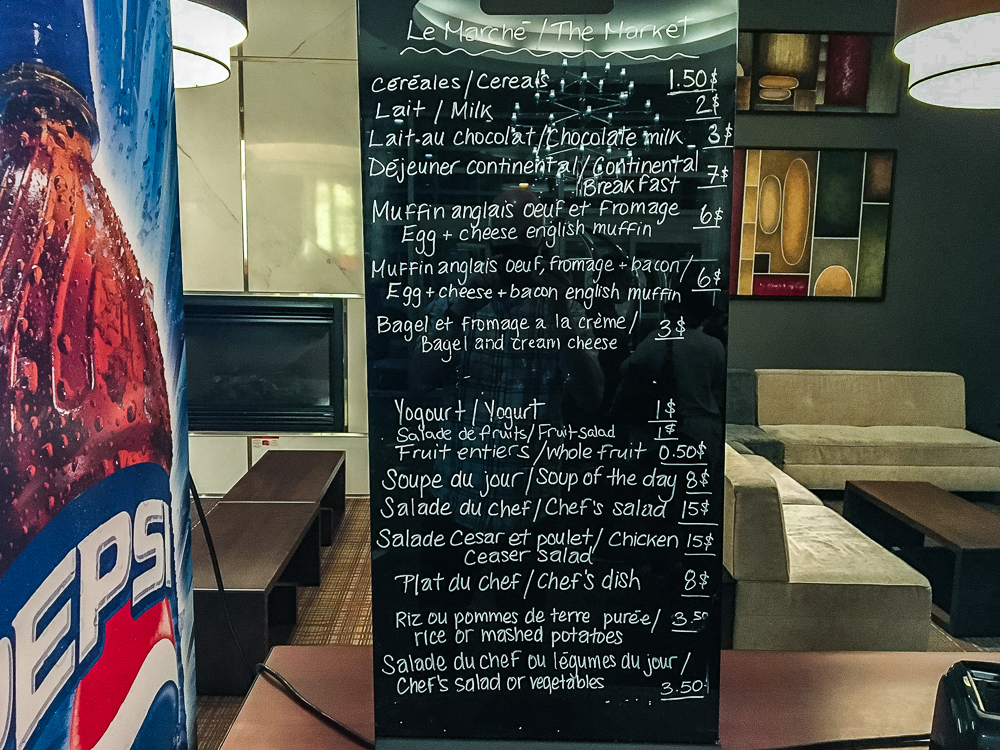 Le Marché / The Market
Céréales / Cereals 1.50$
Lait / Milk 2$
Lait au chocolat / Chocolate milk 3$
Déjeuner continental / Continental
Breakfast 7$
Muffin anglais oeuf et fromage 6$
Egg + cheese english muffin
Muffin anglais oeuf, fromage + bacon / 6$
Egg + cheese + bacon english muffin
Bagel et fromage a la crème / 3$
Bagel and cream cheese
Yogourt / Yogurt 1$
Salade de fruits / Fruit salad 1$
Fruit entiers / Whole fruit 0.50$
Soupe du jour / Soup of the day 8$
Salade du chef / Chef's salad 15$
Salade Cesar et poulet / Chicken 15$
Ceaser salad
Plat du chef / Chef's dish 8$
Riz ou pommes de terre purée / 3.50
rice or mashed potatoes
Salade du chef ou légumes du jour /
Chef's salad or vegetables 3.50
PEPSI